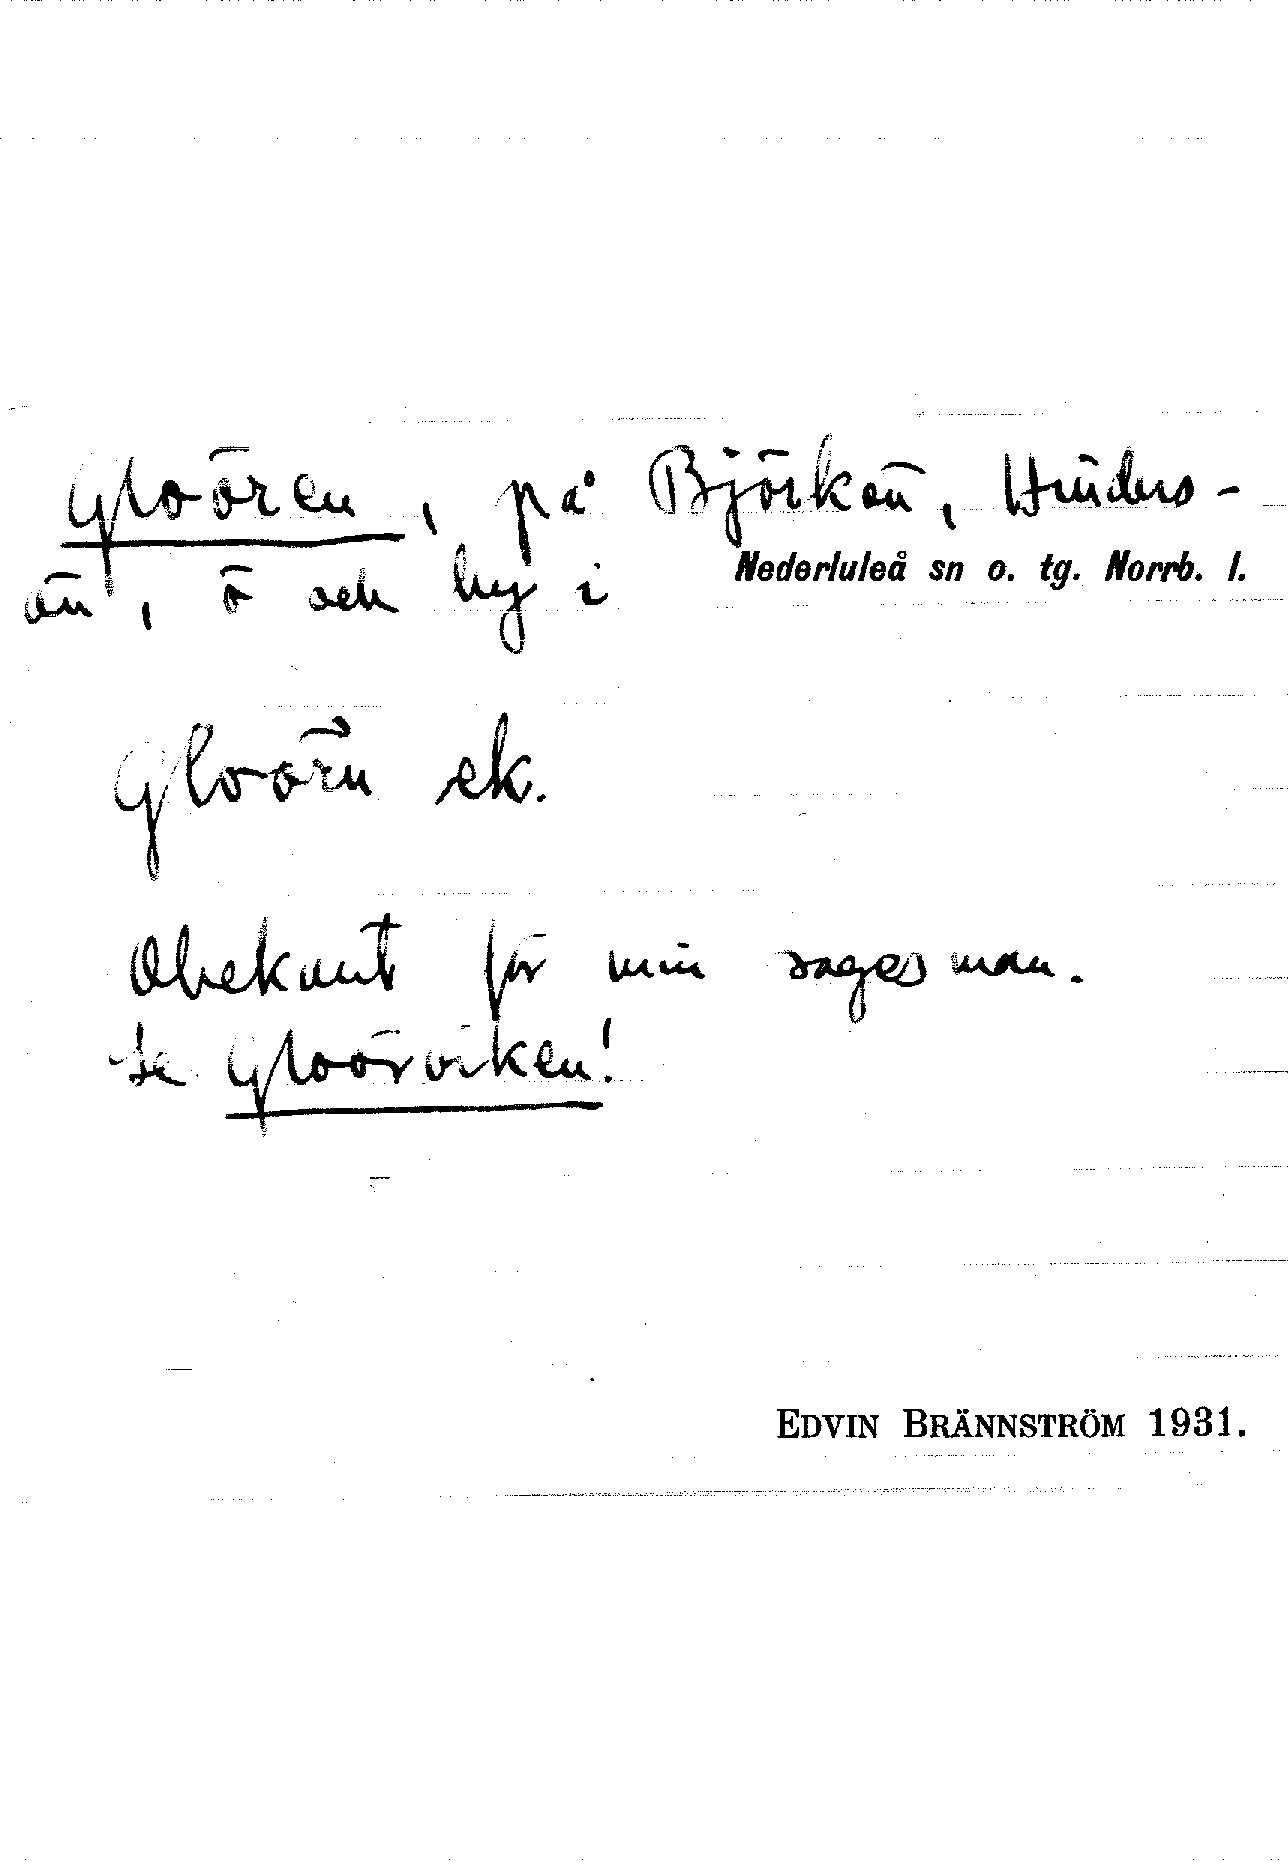 Gloören, på Björkön, Hinders-
ön, ö och by i Nederluleå sn o. tg. Norrb. l.
Gloörn ek.
Obekant för min sagesman.
Se Gloörviken!
EDVIN BRÄNNSTRÖM 1931.